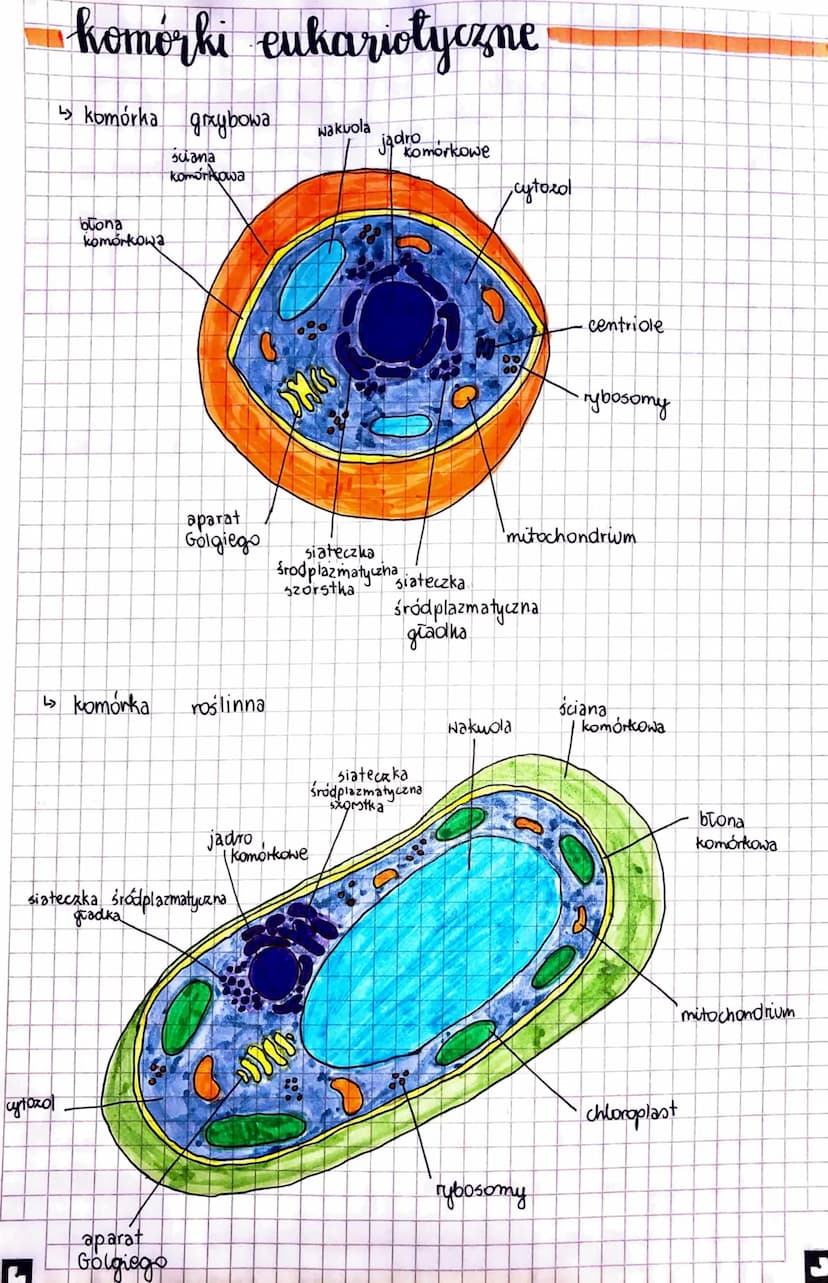 komórki eukariotyczne
↳ komórka grzybowa
ściana
komórkowa
wakuola
jądro
komórkowe
cytozol
błona
komórkowa
centriole
rybosomy
aparat
Golgiego
siateczka
środplazmatyczna
szorstka
siateczka
śródplazmatyczna
gładka
mitochondrium
↳ komórka roślinna
wakuola
ściana
komórkowa
siateczka
śródplazmatyczna
szorstka
błona
komórkowa
jadro
komórkowe
siateczka śródplazmatyczna
gładka
mitochondrium
cytozol
chloroplast
rybosomy
aparat
Golgiego